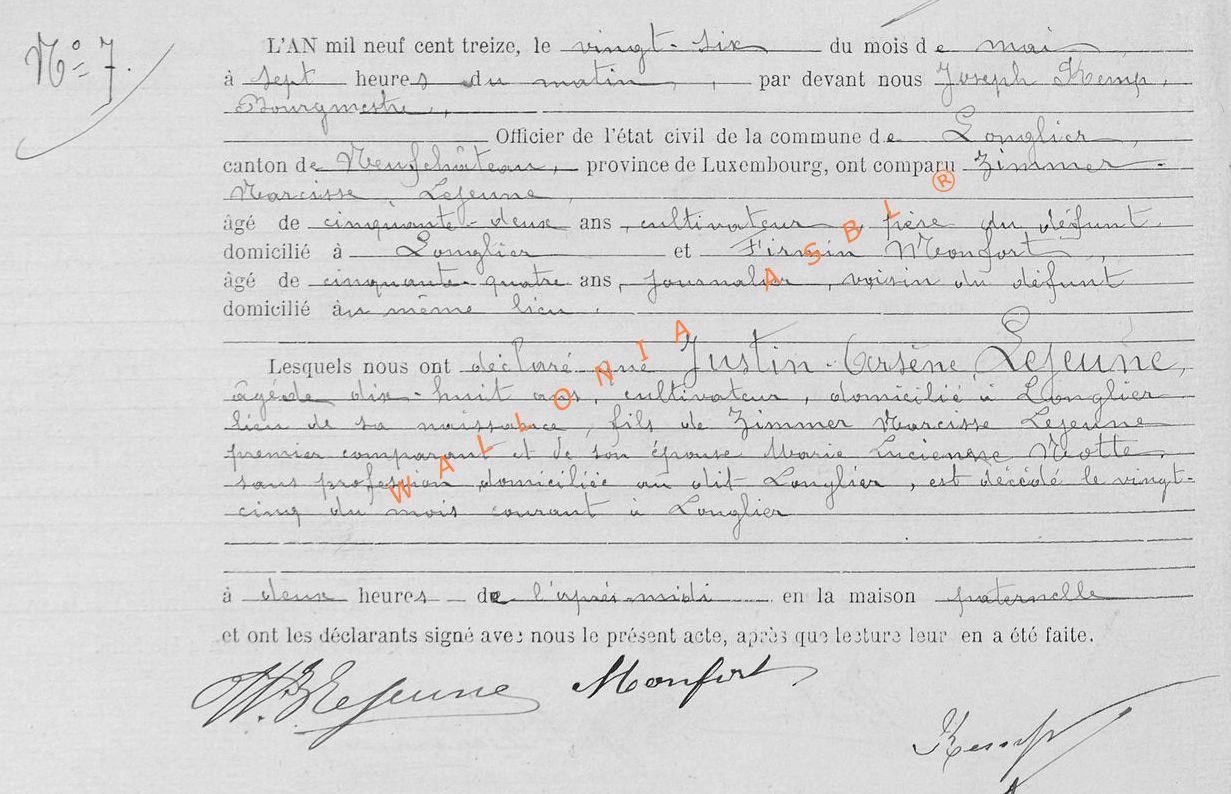 N° 7.
L'AN mil neuf cent treize, le vingt-six du mois de mai,
à sept heures du matin, par devant nous Joseph Kemp,
Bourgmestre,
Officier de l'état civil de la commune de Longlier,
canton de Neufchâteau, province de Luxembourg, ont comparu Zimmer
Narcisse Lejeune
âgé de cinquante-deux ans, cultivateur, père du défunt
domicilié à Longlier et Firmin Monfort,
âgé de cinquante-quatre ans, journalier, voisin du défunt
domicilié au même lieu.
Lesquels nous ont déclaré que Justin-Arsène Lejeune,
âgé de dix-huit ans, cultivateur, domicilié à Longlier
lieu de sa naissance, fils de Zimmer Narcisse Lejeune
premier comparant et de son épouse Marie Lucienne Motte,
sans profession domiciliée au dit Longlier, est décédé le vingt-
cinq du mois courant à Longlier
à deux heures de l'après-midi en la maison paternelle
et ont les déclarants signé avec nous le présent acte, après que lecture leur en a été faite.
Lejeune Monfort
Kemp
WALLONIA ASBL ®